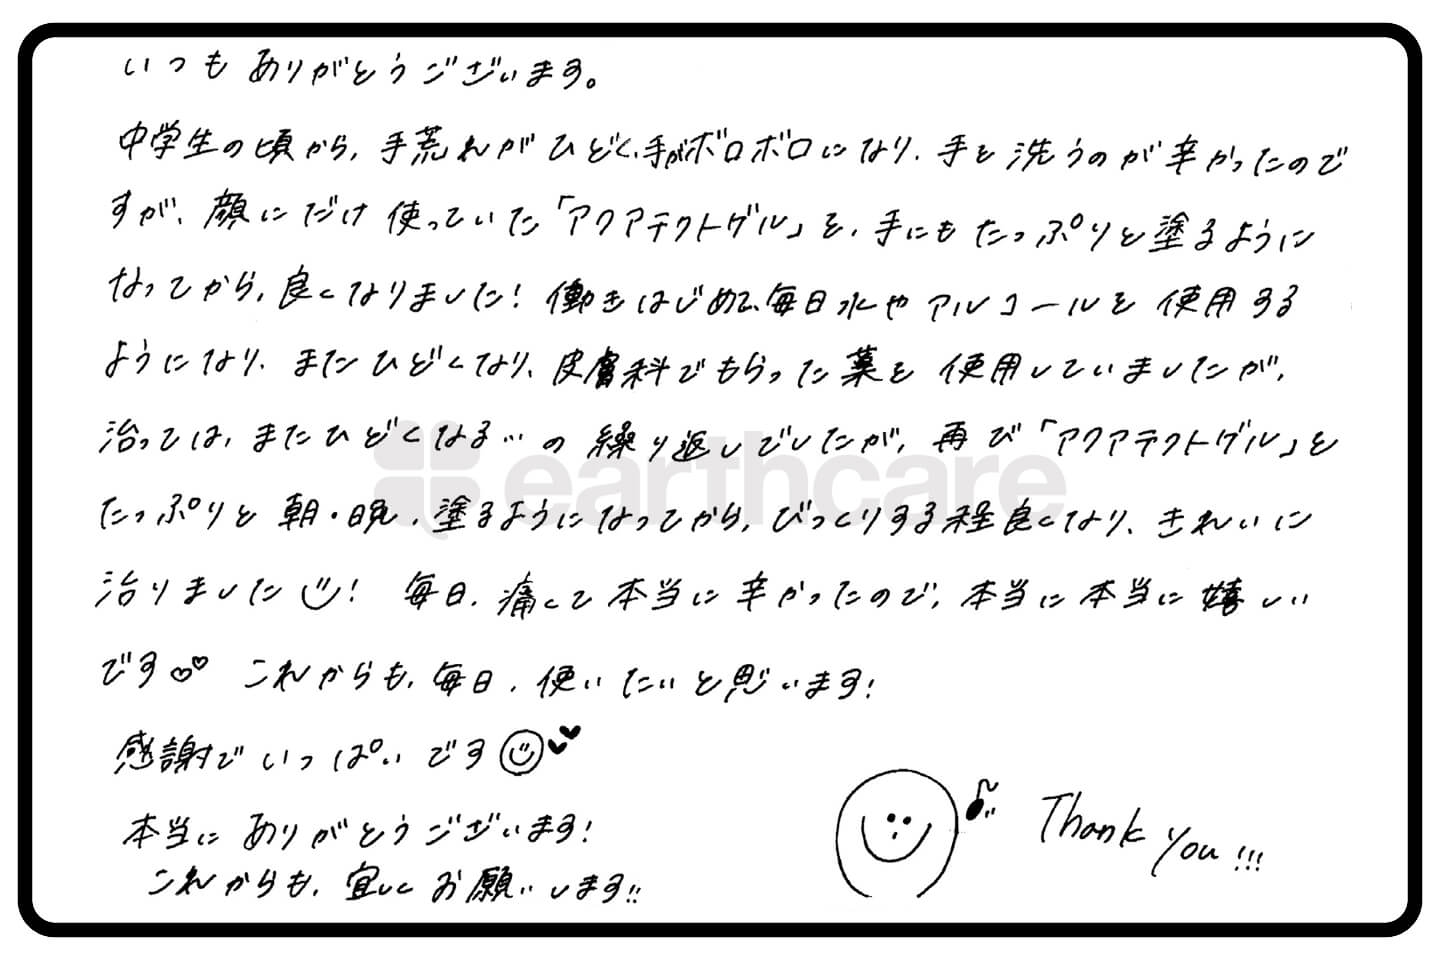 いつもありがとうございます。
中学生の頃から、手荒れがひどく、手がボロボロになり、手を洗うのが辛かったので
すが、顔にだけ使っていた「アクアテクトゲル」を、手にもたっぷりと塗るように
なってから、良くなりました！働きはじめて、毎日水やアルコールを使用する
ようになり、またひどくなり、皮膚科でもらった薬を使用していましたが、
治っては、またひどくなる…の繰り返しでしたが、再び「アクアテクトゲル」を
earthcare
たっぷりと朝・晩、塗るようになってから、びっくりする程良くなり、きれいに
治りました！毎日、痛くて本当に辛かったので、本当に本当に嬉しい
です♡♡ これからも、毎日、使いたいと思います！
感謝でいっぱいです
本当にありがとうございます！
これからも、宜しくお願いします!!
Thank you!!!